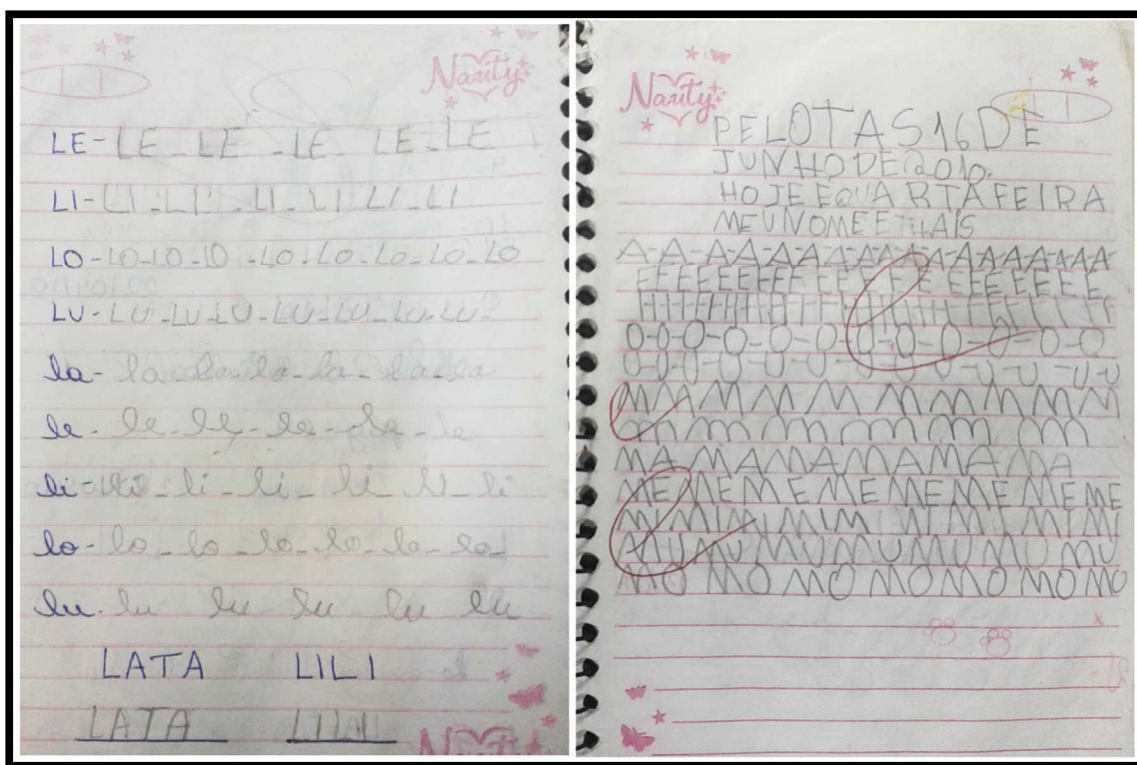 Nauty
LE- LE - LE - LE LE - LE
LI- LI - LI - LI - LI LI - LI
LO - LO - LO - LO - LO - LO - LO - LO - LO
LU - LU - LU - LU - LU - LU - LU - LU -
la - la - la - la - la - la - la
le - le - le - le - le - le
li - li - li - li - li li - li
lo - lo - lo - lo - lo - lo - lo
lu - lu lu lu lu lu
LATA LILI
LATA
Nauty
Nauty
PELOTAS 16 DE
JUNHO DE 2010.
HOJE E QUARTA FEIRA
MEU NOME E THAIS
A-A-A-A-A-A-A-A-A-A-A-A-A-A-A
E E E E E E E E E E E E E E E E
O-O-O-O-O-O-O-O-O-O-O-O
U-U-U-U-U-U-U-U-U-U-U-U
M A M M M M M M M M
M M M M M M M M
MA MA MA MA MA MA
ME ME ME ME ME ME ME ME
MI MI MI MI M MI MI MI MI
MU MU MU MU MU MU MU
MO MO MO MO MO MO MO